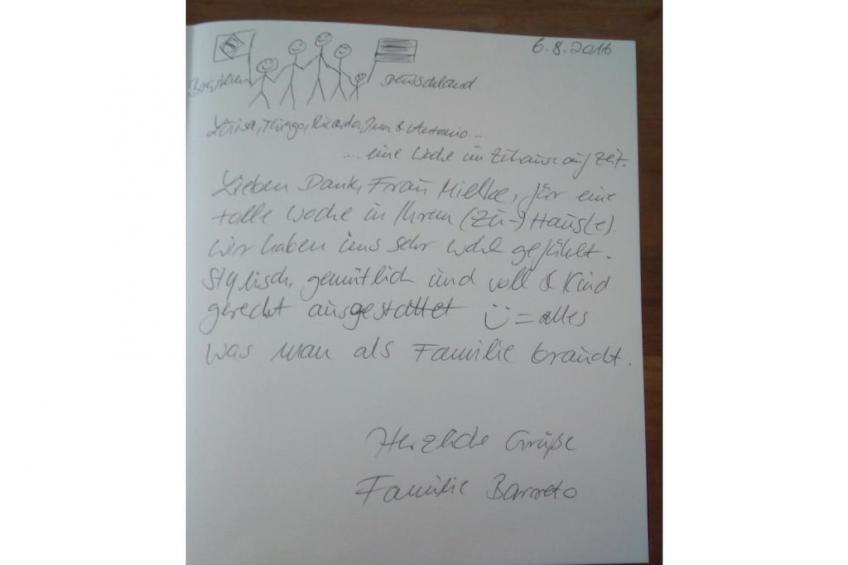 6.8.2016
Brasilien Deutschland
Thiago, Ricardo, & Antonio ...
... eine Woche im Zuhause auf Zeit.
Lieben Dank, Frau Mielke, für eine
tolle Woche in Ihrem (Zu-) Haus(e).
Wir haben uns sehr wohl gefühlt.
Stylisch, gemütlich und voll & Kind
gerecht ausgestattet ü = alles
was man als Familie braucht.
Herzliche Grüße
Familie Barreto